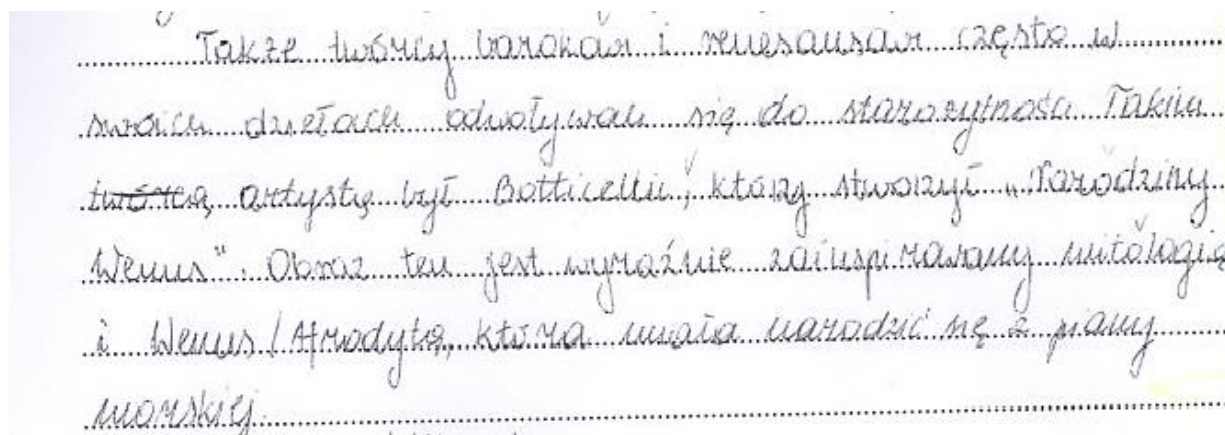 Także twórcy baroków i renesansów często w
swoich dziełach odwoływali się do starożytności. Takim
twórcą artystą był Botticelli, który stworzył „Narodziny
Wenus". Obraz ten jest wyraźnie zainspirowany mitologią
i Wenus/Afrodytą, która miała narodzić się z piany
morskiej.